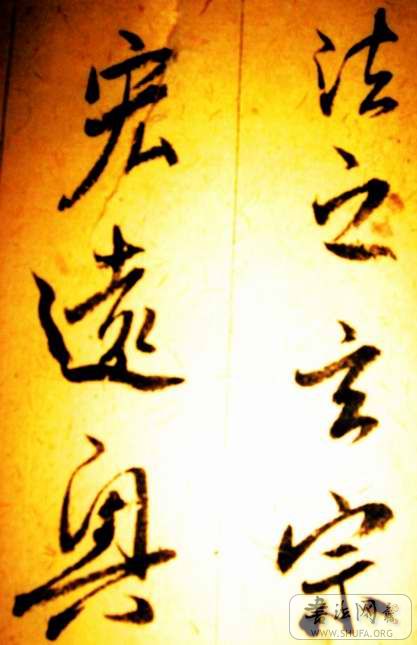 法之玄宗
宏遠奥
書法网
WWW.SHUFA.ORG